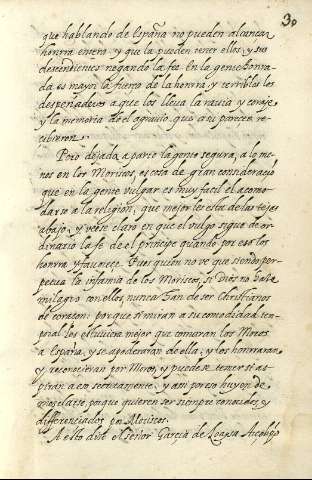 30
que hablando de España no pueden alcançar
honrra entera y que la pueden tener ellos, y sus
descendientes negando la fee. En la gente honra-
da es mayor la fuerça de la honrra, y terribles los
despeñaderos a que los lleva la rauia y coraje
y la memoria de el agrauio, que a su parecer re-
cibieron.
Pero dejada a parte la gente segura, a lo me-
nos en los Moriscos, es cosa de gran consideracio
que en la gente vulgar es muy facil el acomo-
darse a la religion, que mejor les esta de las tejas
abajo, y veese claro en que el vulgo sigue de or-
dinario la fe de el principe quando por eso los
honrra y fauorece. Pues quien no ve que siendo per-
petua la infamia de los Moriscos, si Dios no haze
milagro con ellos, nunca han de ser Christianos
de coraçon: porque si miran a su comodidad tem-
poral les estuuiera mejor que tornaran los Moros
a España, y se apoderaran de ella, y los honraran,
y reconocieran por Moros, y puedese temer si as-
piran a eso secretamente, y asi por eso huyen de
mezclarse, porque quieren ser siempre conocidos, y
differenciados por Moriscos.
A esto dize el señor Garcia de Loaysa Arcobispo